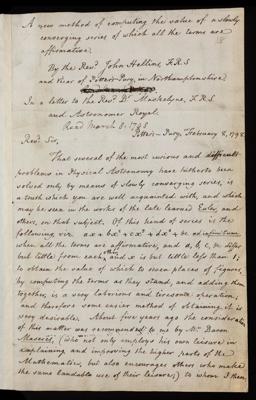 A new method of computing the value of a slowly
converging series of which all the terms are
affirmative.
By the Revd. John Hellins, F.R.S.
and Vicar of Potters-Pury, in Northamptonshire.
In a letter to the Revd. Dr. Maskelyne, F.R.S.
and Astronomer Royal.
Read March 8. 1798
Potters-Pury, February 8, 1798.
Revd. Sir,
That several of the most curious and difficult
problems in Physical Astronomy have hitherto been
solved only by means of slowly converging series, is
a truth which you are well acquainted with, and which
may be seen in the works of the late learned Euler and
others, on that subject. Of this kind of series is the
following viz. ax + bx² + cx³ + dx⁴ &c ad infinitum
when all the terms are affirmative, and a, b, c, &c differ
but little from each other and x is but little less than 1;
to obtain the value of which to seven places of figures,
by computing the terms as they stand, and adding them
together, is a very laborious and tiresome operation,
and therefore some easier method of obtaining it is
very desirable. About five years ago the consideration
of this matter was recommended to me by Mr. Baron
Maseres, (who not only employs his own leisure in
explaining and improving the higher parts of the
Mathematics, but also encourages others who make
the same laudable use of their leisure,) to whom I then